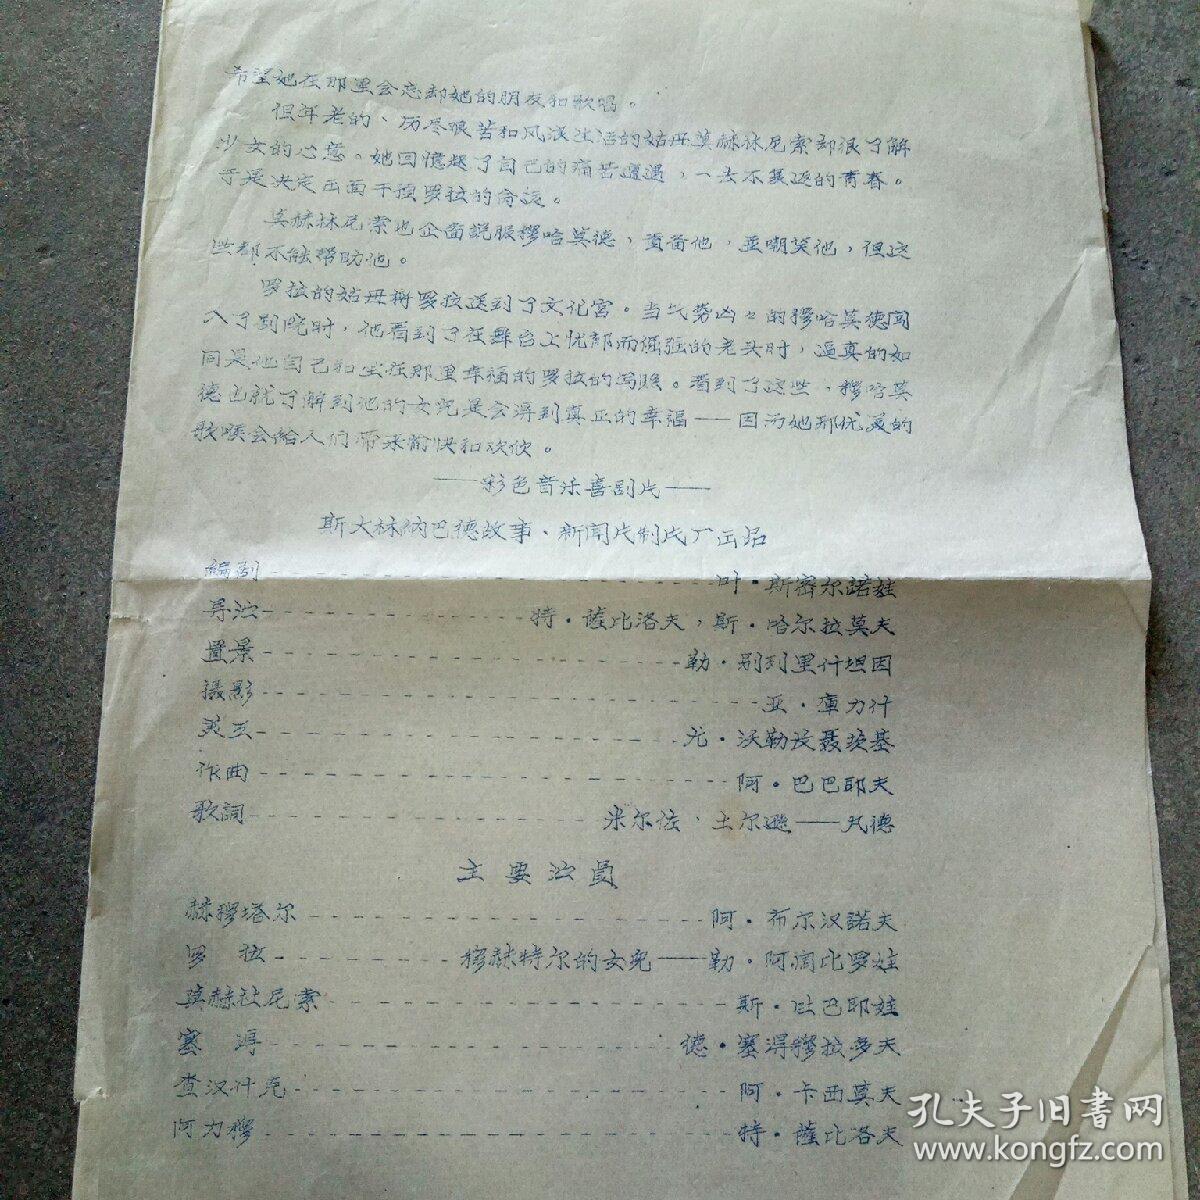 希望她在那里会忘却她的朋友和歌唱。
但年老的、历尽艰苦和风浪生活的姑母莫赫林尼索却很了解
少女的心意。她回憶起了自己的痛苦遭遇，一去不复返的青春。
于是决定出面干预罗拉的命运。
莫赫林尼索也企啚説服穆哈莫德，責备他，並嘲笑他，但这
些都不能帮助他。
罗拉的姑母将罗拉送到了文化宫。当气势凶々的穆哈莫德闯
入了剧院时，他看到了在舞台上忧郁而倔强的老头时，逼真的如
同是他自己和坐在那里幸福的罗拉的面賖。看到了这些，穆哈莫
德也就了解到他的女兒是会得到真正的幸福——因为她那优美的
歌喉会給人们带来愉快和欢欣。
——彩色音乐喜剧片——
斯大林納巴德故事、新闻片制片厂出品
編剧----------叶·斯密尔諾娃
导演----------特·薩比洛夫，斯·哈尔拉莫夫
置景----------勒·别列里什坦因
摄影----------亚·庫力什
美工----------尤·沃勒皮聂茨基
作曲----------阿·巴巴耶夫
歌詞----------米尔佐·土尔遜——凡德
主要演員
赫穆塔尔----------阿·布尔汉諾夫
罗　拉----------穆赫特尔的女兒——勒·阿滴比罗娃
莫赫林尼索----------斯·吐巴耶娃
塞　得----------德·塞得穆拉多夫
查汉什克----------阿·卡西莫夫
阿力穆----------特·薩比洛夫
孔夫子旧書网
www.kongfz.com